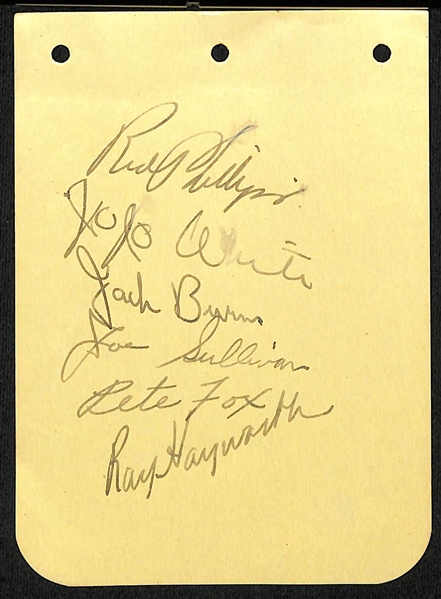 Red Phillips
JoJo White
Jack Burns
Joe Sullivan
Pete Fox
Ray Hayworth